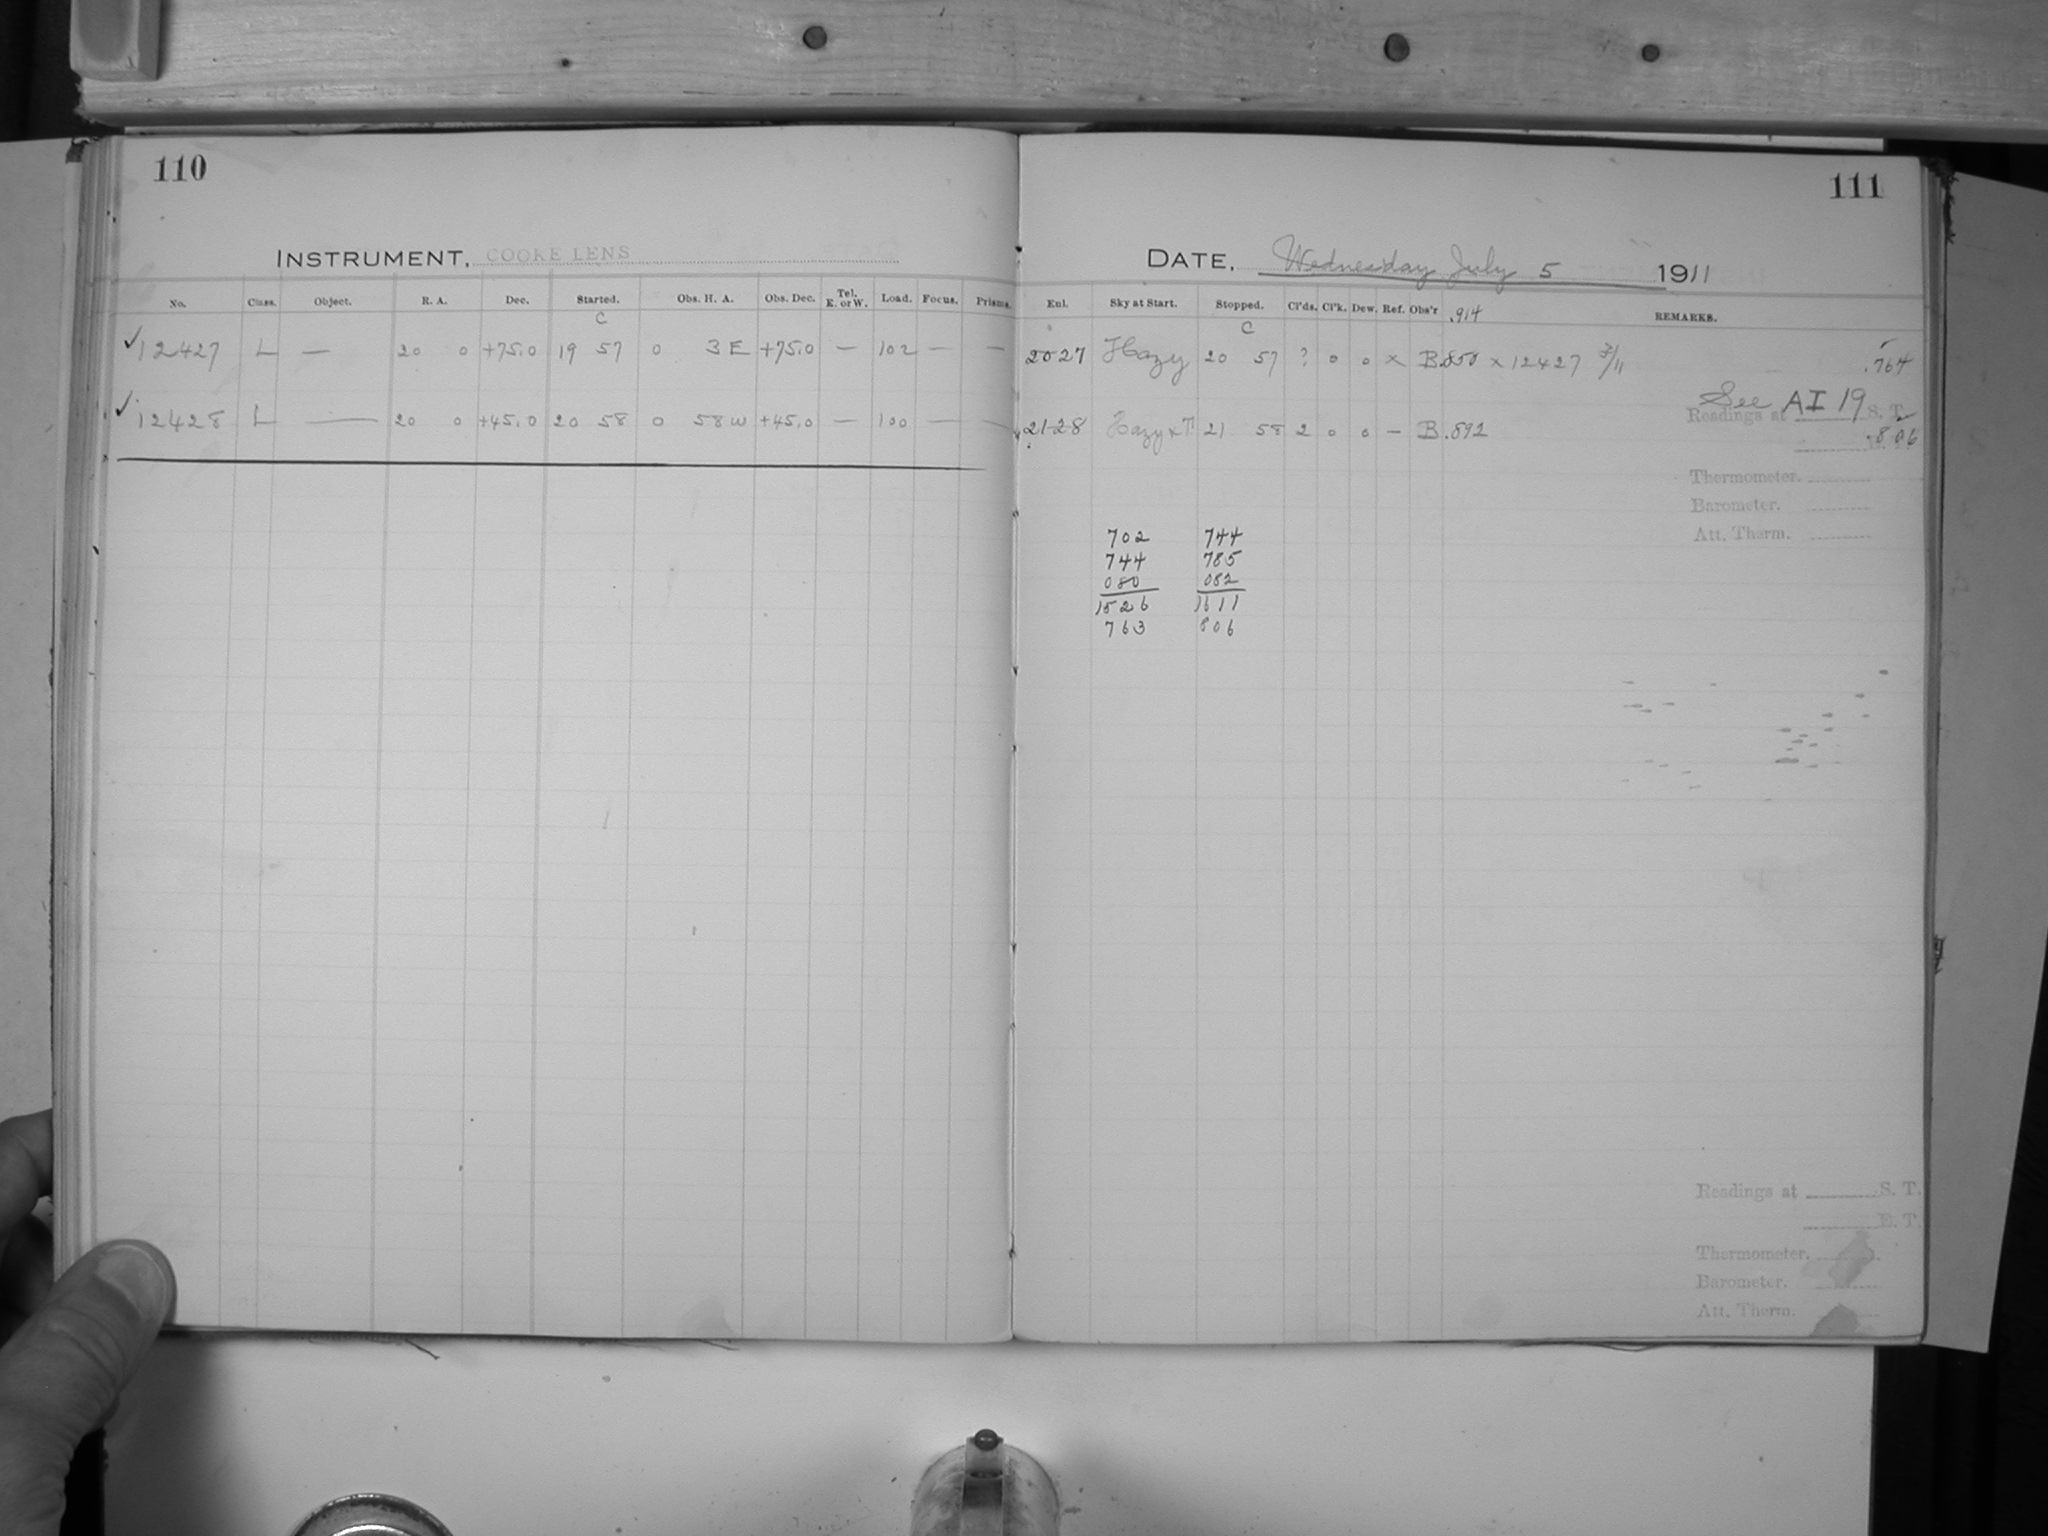 110
INSTRUMENT, COOKE LENS
No. Class. Object. R. A. Dec. Started. Obs. H. A. Obs. Dec. Tel. E. or W. Load. Focus. Prisms.
C
✓12427 L — 20 0 +75.0 19 57 0 3 E +75.0 — 102 — —
✓12428 L — 20 0 +45.0 20 58 0 58 W +45.0 — 100 — —
111
DATE, Wednesday July 5 1911
Exl. Sky at Start. Stopped. Cl'ds. Cl'k. Dew. Ref. Obs'r .914 REMARKS.
C
2027 Hazy 20 57 ? 0 0 x B.850 x 12427 .764
See AI 19
Readings at S. T.
2128 Hazy x T 21 58 2 0 0 — B.892 .806
Thermometer.
Barometer.
Att. Therm.
702 744
744 785
080 082
1526 1611
763 806
Readings at S. T.
E. T.
Thermometer.
Barometer.
Att. Therm.